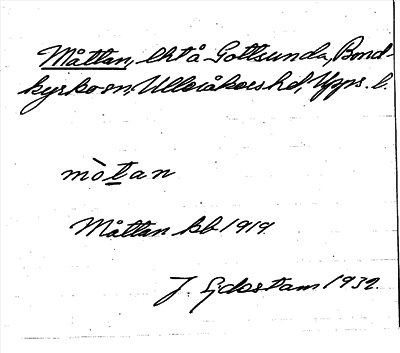 Måttan, lht å Gottsunda, Bond-
kyrko sn, Ulleråkers hd, Upps. l.
mòtan
Måttan kb 1919.
J. Sjöstam 1932.